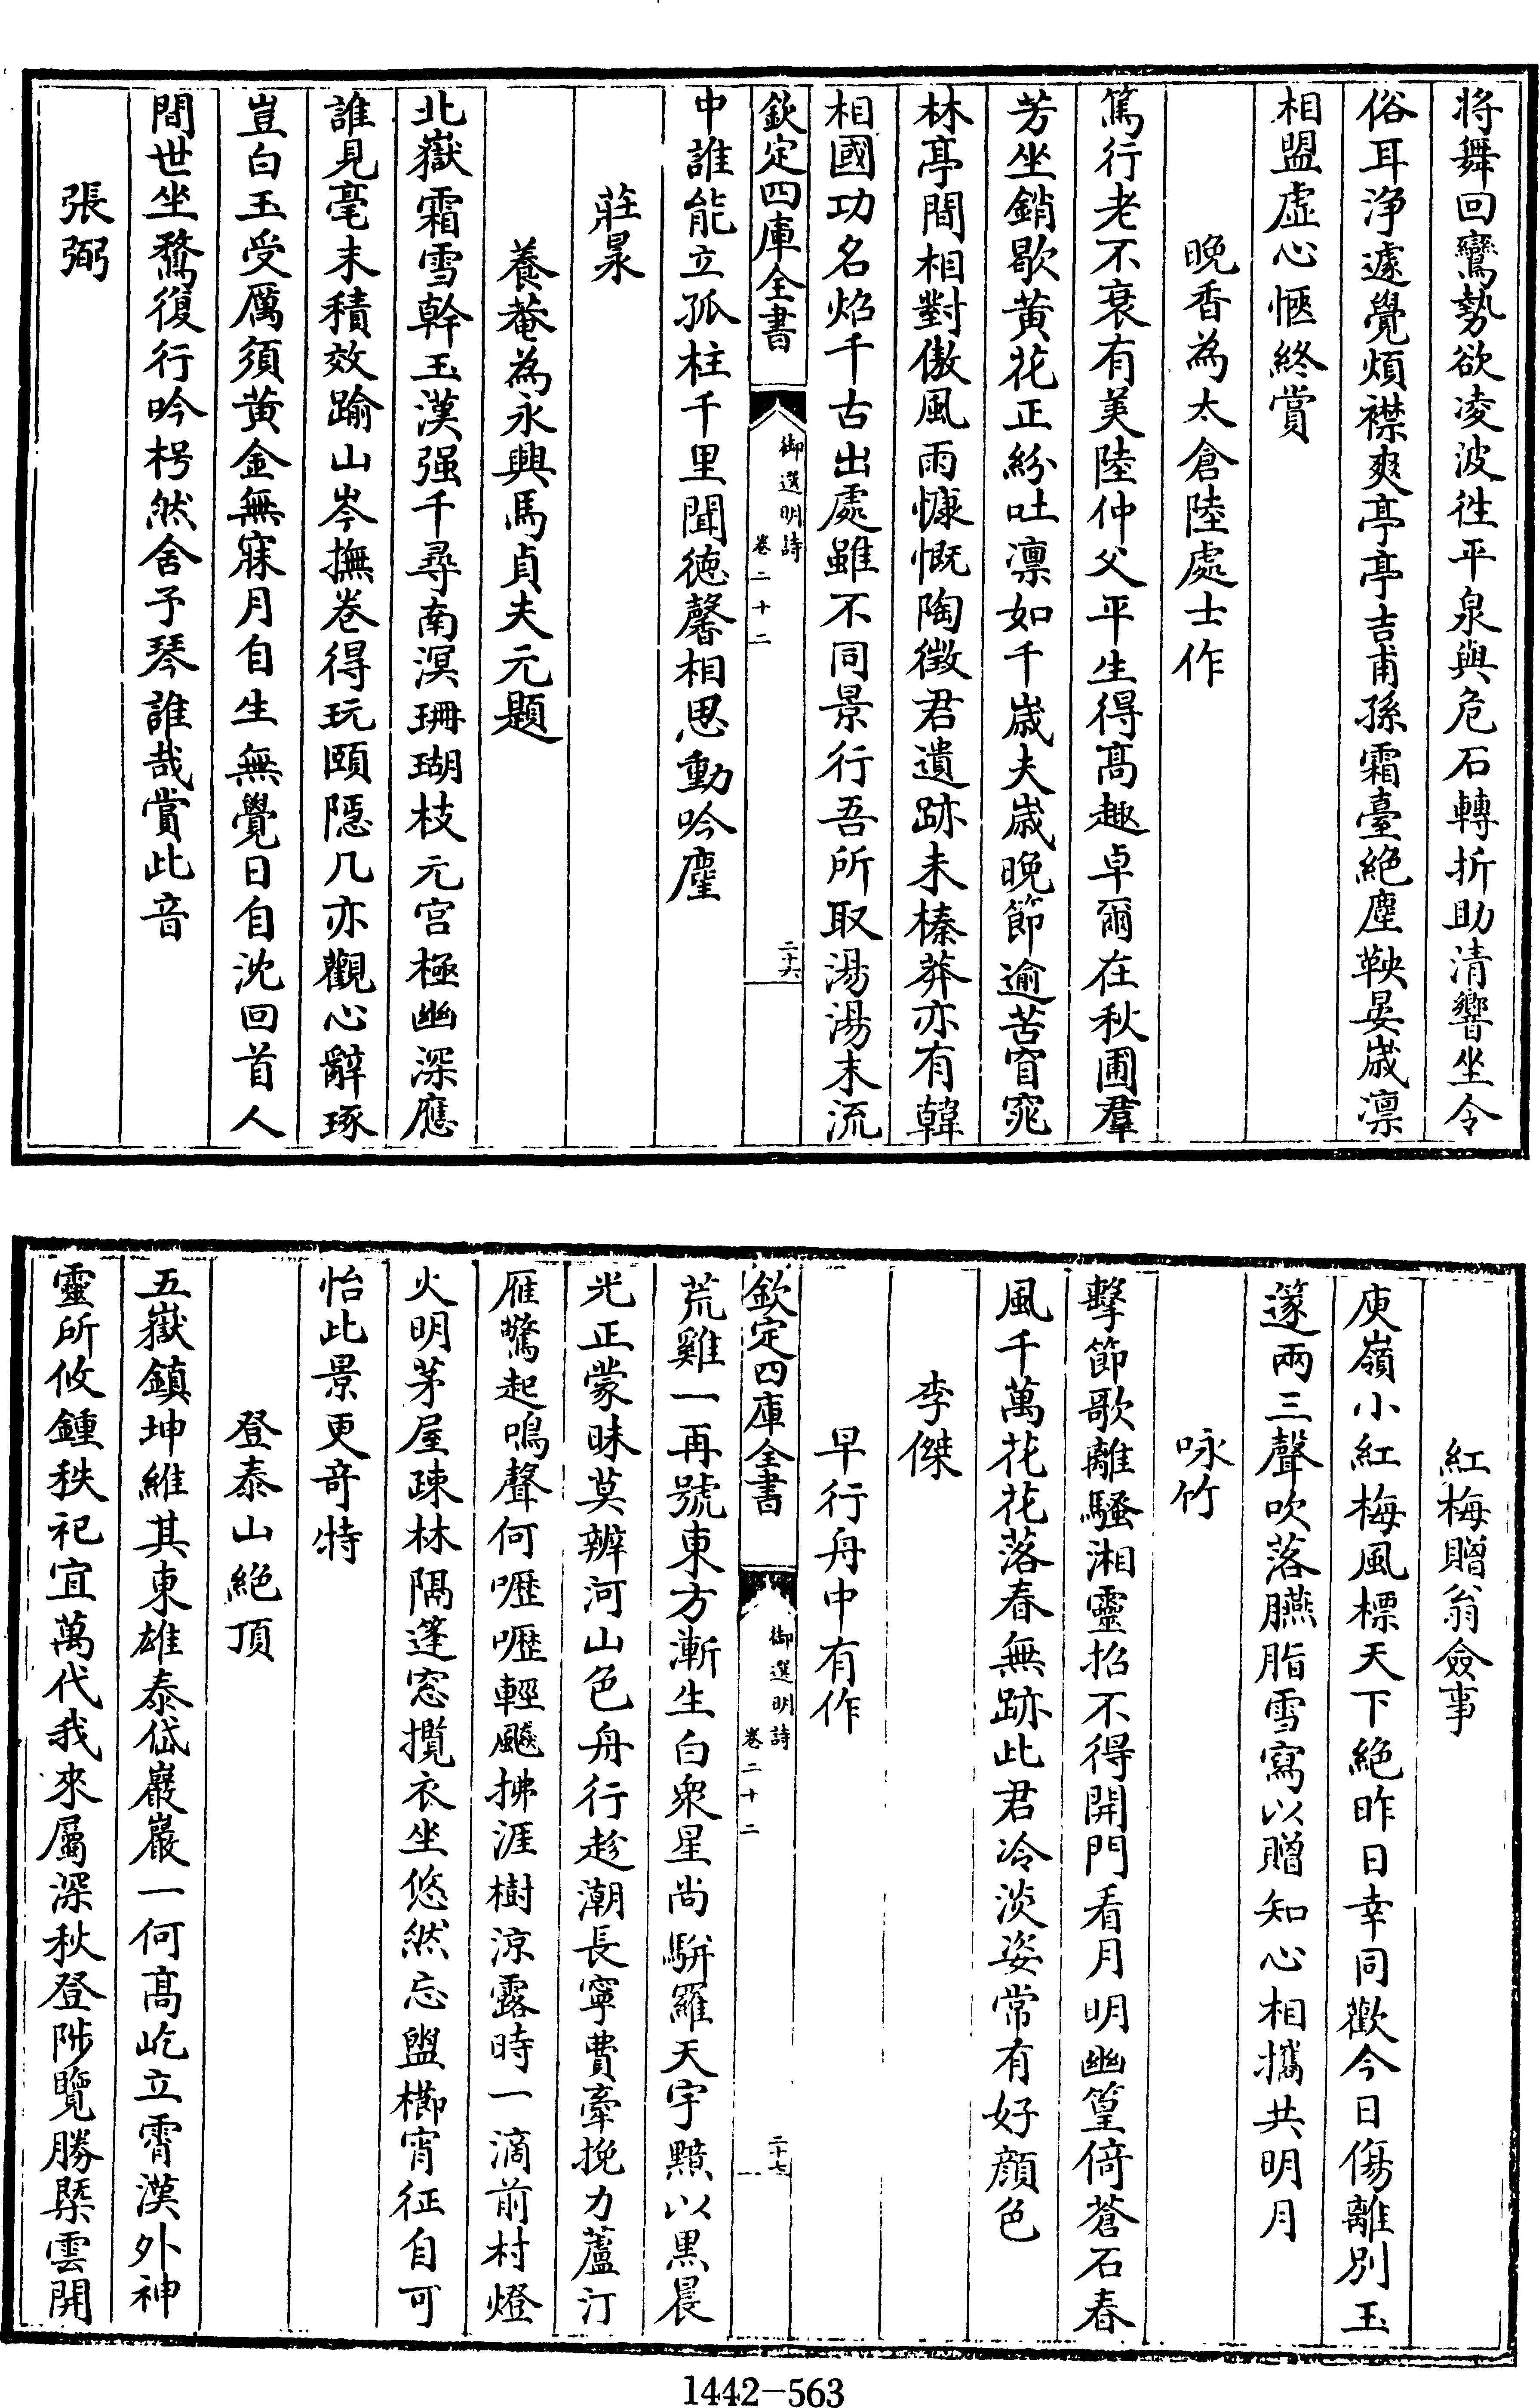 将舞回鸞勢欲凌波徃平泉與危石轉折助清響坐令
俗耳浄遽覺煩襟爽亭亭吉甫孫霜臺絶塵鞅晏嵗凛
相盟虚心愜終賞
晩香為太倉陸處士作
篤行老不衰有美陸仲父平生得髙趣卓爾在秋圃羣
芳坐銷歇黄花正紛吐凛如千嵗夫嵗晩節逾苦窅窕
林亭間相對傲風雨慷慨陶徴君遺跡未榛莽亦有韓
相國功名焰千古出處雖不同景行吾所取湯湯末流
欽定四庫全書
御選明詩
卷二十二
二十六
中誰能立孤柱千里聞徳馨相思動吟麈
莊㫤
養菴為永興馬貞夫元題
北嶽霜雪幹玉漢强千尋南溟珊瑚枝元宫極幽深應
誰見毫末積效踰山岑撫卷得玩頤隠几亦觀心辭琢
豈白玉受厲須黄金無寐月自生無覺日自沈回首人
間世坐騖復行吟枵然舍予琴誰哉賞此音
張弼
紅梅贈翁僉事
庾嶺小紅梅風標天下絶昨日幸同歡今日傷離别玉
篴兩三聲吹落臙脂雪寫以贈知心相攜共明月
咏竹
擊節歌離騷湘靈招不得開門看月明幽篁倚蒼石春
風千萬花花落春無跡此君冷淡姿常有好顔色
李傑
早行舟中有作
欽定四庫全書
御選明詩
卷二十二
二十七
荒雞一再號東方漸生白衆星尚駢羅天宇黯以黒晨
光正蒙昧莫辨河山色舟行趁潮長寧費牽挽力蘆汀
雁驚起鳴聲何嚦嚦輕颸拂涯樹涼露時一滴前村燈
火明茅屋疎林隔篷窓攬衣坐悠然忘盥櫛宵征自可
怡此景更竒特
登泰山絶頂
五嶽鎮坤維其東雄泰岱巖巖一何髙屹立霄漢外神
靈所攸鍾秩祀宜萬代我來屬深秋登陟覽勝槩雲開
1442-563